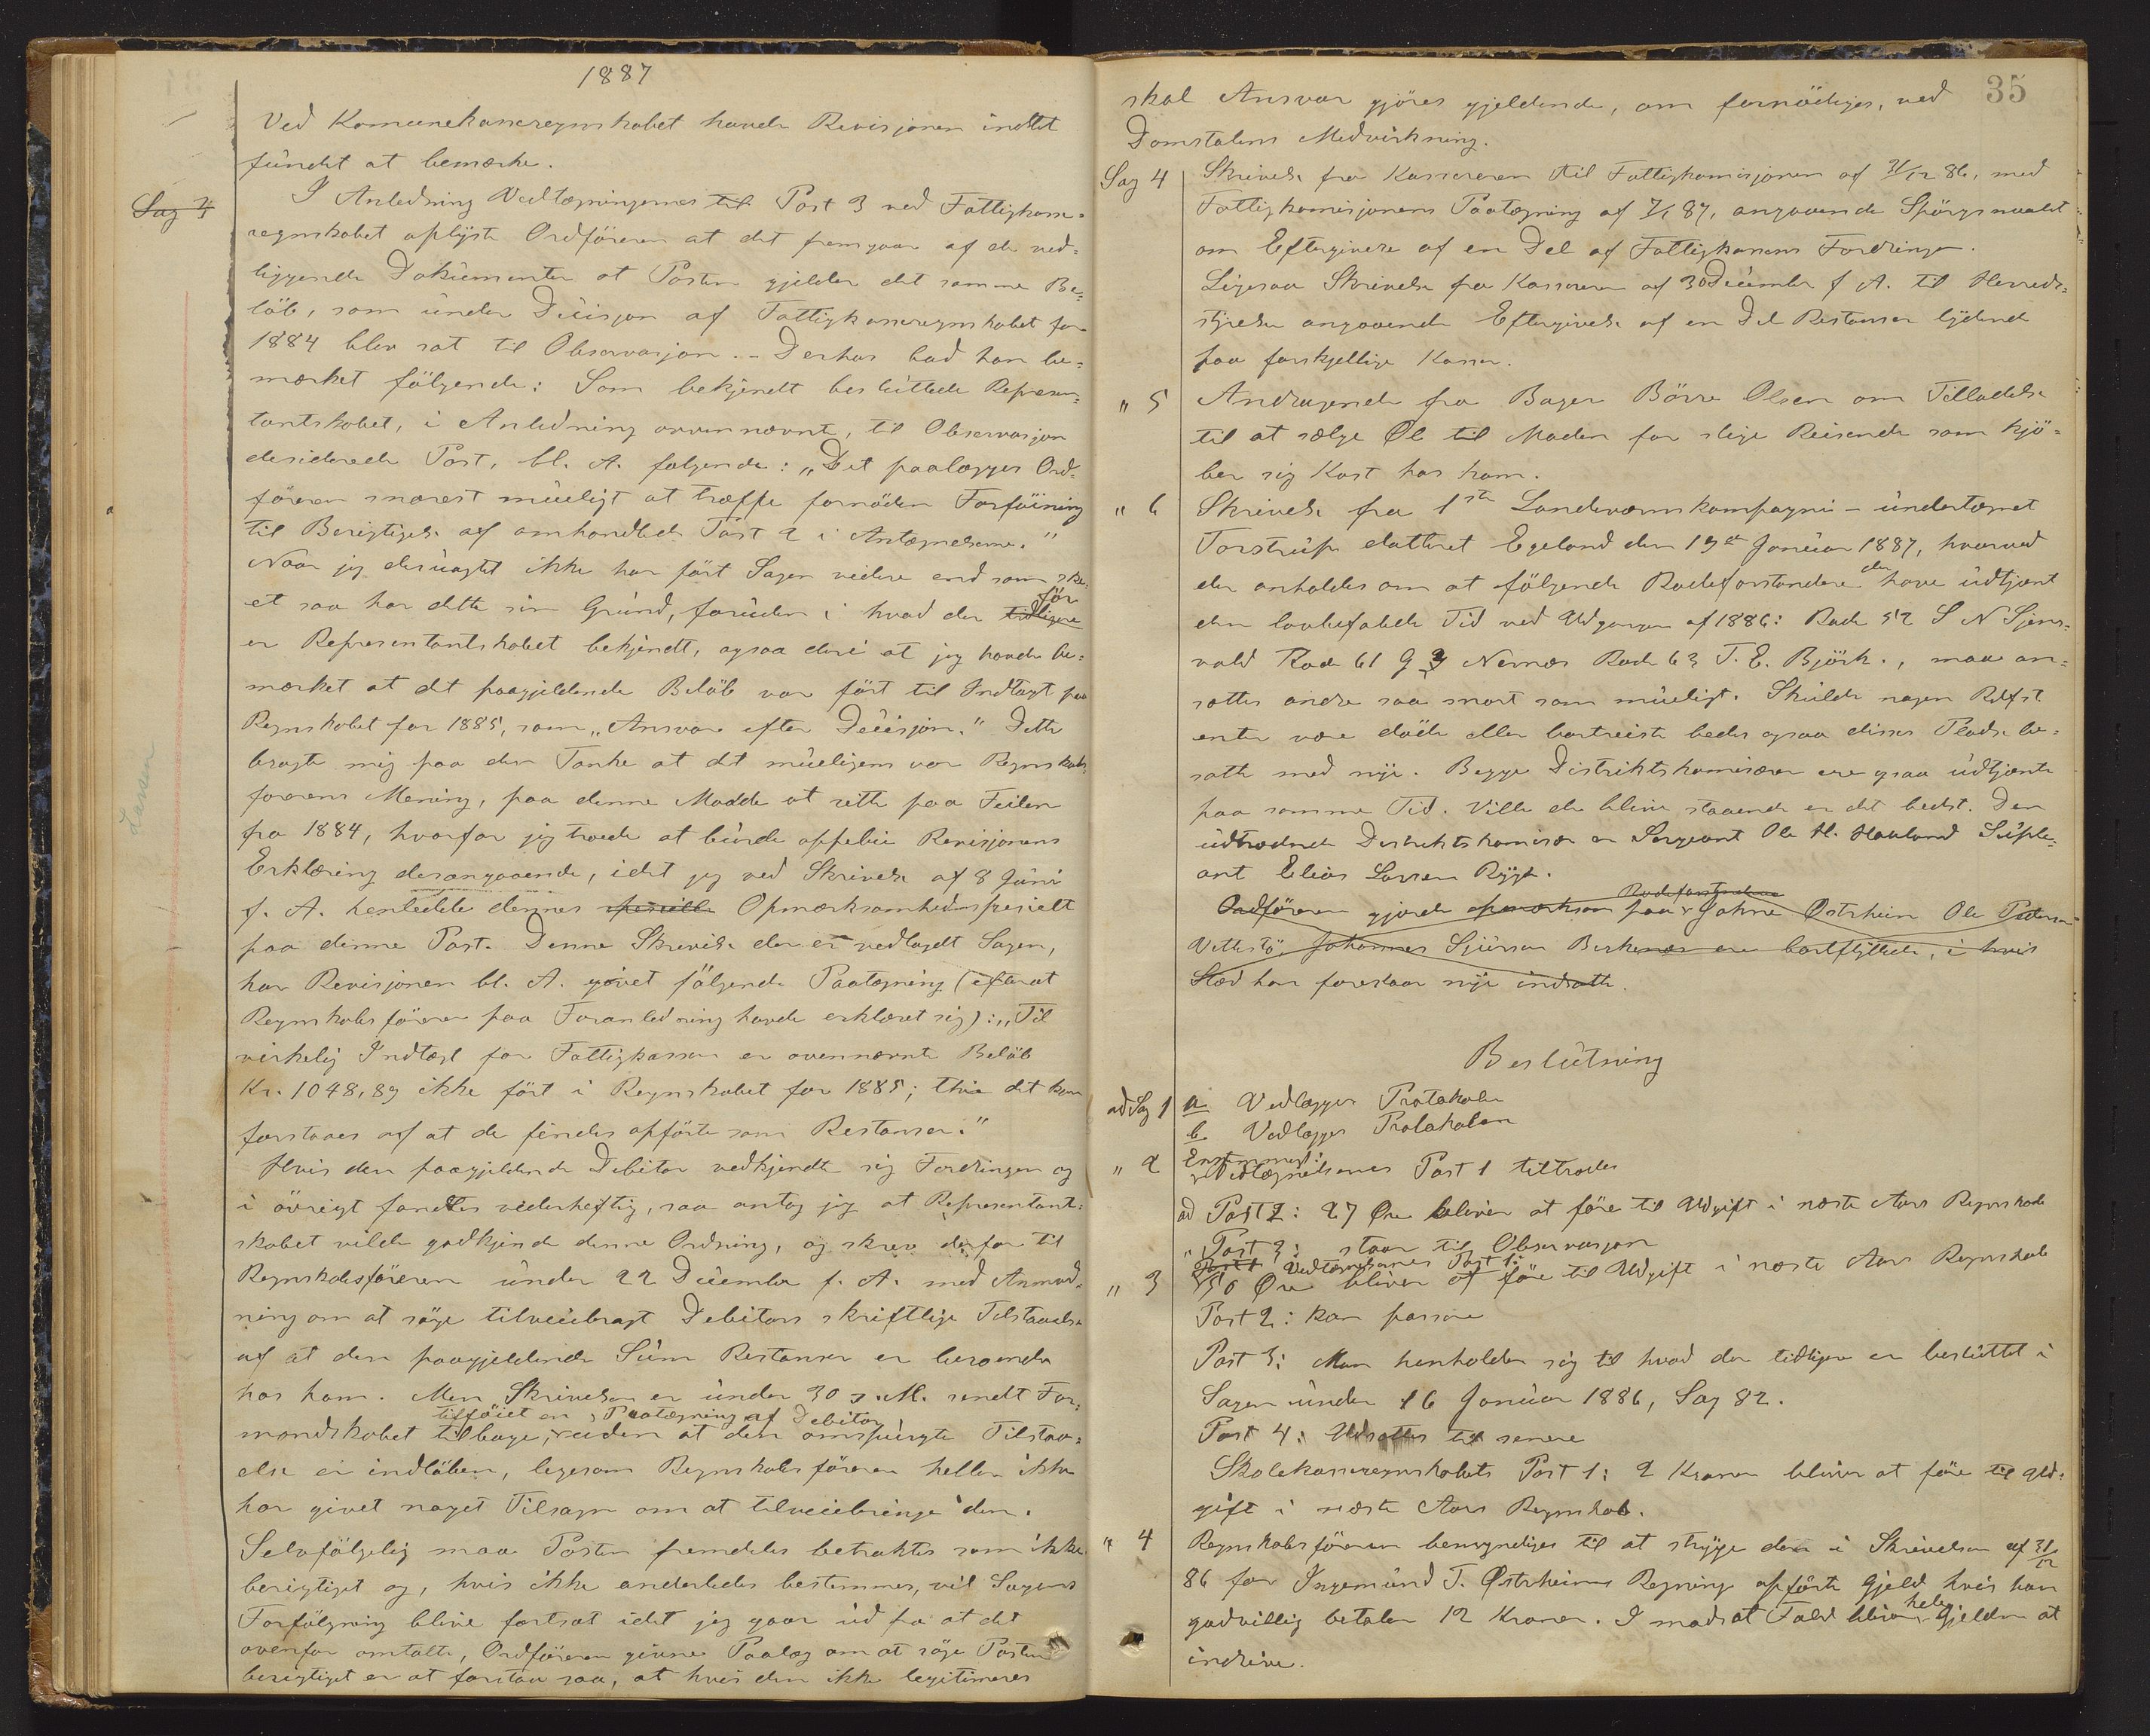 1887
Ved Komunekasseregnskabet havde Revisjonen indtet
fundet at bemærke.
Sag 3
I Anledning Vedtegningernes til Post 3 ved Fattigkasse-
regnskabet oplyste Ordföreren at det fremgaar af de ved-
liggende Dokumenter at Posten gjelder det samme Be-
löb, som under Desisjon af Fattigkasseregnskabet for
1884 blev sat til Observasjon. - Derhos bad han be-
mærket fölgende: Som bekjendt besluttede Represen-
tantskabet, i Anledning ovennævnte, til Observasjon
desiderede Post, bl. A. følgende: „Det paalægges Ord-
föreren snarest mueligt at træffe fornöden Forföining
til Berigtigelse af omhandlede Post 2 i Antegnelserne."
Naar jeg desuagtet ikke har fört Sagen videre end som ske-
et saa har dette sin Grund, foruden i hvad der tidligere för
er Representantskabet bekjendt, ogsaa deri at jeg havde be-
mærket at det paagjeldende Belöb var fört til Indtægt paa
Regnskabet for 1885, som „Ansvar efter Desisjon." Dette
bragte mig paa den Tanke at det mueligens var Regnskabs-
förerens Mening, paa denne Maade at rette paa Feilen
fra 1884, hvorfor jeg troede at burde oppebie Revisjonens
Erklæring desangaaende, idet jeg ved Skrivelse af 8 Juni
f. A. henledede dennes spesielle Opmærksomhed spesielt
paa denne Post. Denne Skrivelse der er vedlagdt Sagen,
har Revisjonen bl. A. givet fölgende Paategning (efterat
Regnskabsföreren paa Foranledning havde erklæret sig): „Til
virkelig Indtægt for Fattigkassen er ovennævnte Belöb
Kr. 1048,89 ikke fört i Regnskabet for 1885; thi det kan
forstaaes af at de findes opförte som Restanser."
Hvis den paagjeldende Debitor vedkjendte sig Fordringen og
i övrigt fandtes vederheftig, saa antog jeg at Representant-
skabet vilde godkjende denne Ordning, og skrev derfor til
Regnskabsföreren under 22 December f. A. med Anmod-
ning om at söge tilveiebragt Debitors skriftlige Tilstaaelse
af at den paagjeldende Sum Restanser er beroende
hos ham. Men Skrivelsen er under 30 s. M. sendt For-
tilföiet en Paategning af Debitor
mandskabet tilbage, uden at den omspurgte Tilstaa-
else er indlöben, ligesom Regnskabsföreren heller ikke
har givet noget Tilsagn om at tilveiebringe den.
Selvfölgelig maa Posten fremdeles betraktes som ikke
berigtiget og, hvis ikke anderledes bestemmes, vil Sagens
Forfölgning blive fortsat idet jeg gaar ud fra at det
ovenfor omtalte, Ordföreren givne Paalæg om at söge Posten
berigtiget er at forstaa saa, at hvis den ikke legitimeres
Larsen
35
skal Ansvar gjöres gjeldende, om fornödiges, ved
Domstolens Medvirkning.
Sag 4 Skrivelse fra Kassereren til Fattigkomisjonen af 31/12 86, med
Fattigkomisjonens Paategning af 7/1 87, angaaende Spörgsmaalet
om Eftergivelse af en Del af Fattigkassens Fordringer.
Ligesaa Skrivelse fra Kassereren af 30 December f A. til Herreds-
styrelsen angaaende Eftergivelse af en Del Restanser lydende
paa forskjellige Kasser.
„ 5 Andragende fra Bager Börre Olsen om Tilladelse
til at sælge Øl til Maden for slige Reisende som kjö-
ber sig Kost hos ham.
„ 6 Skrivelse fra 1ste Landeværnskompagni - undertegnet
Torstrup datteret Egeland den 19de Januar 1887, hvorved
der anholdes om at fölgende Rodeforstandere der have udtjent
den lovbefalede Tid ved Udgangen af 1886: Rode 52 S N Sjens-
vold Rode 61 G J Nernæs Rode 63 T. E. Björk., maa an-
sættes andre saa snart som mueligt. Skulde nogen Rdfst
enten være döde eller bortreiste bedes ogsaa disses Plads be-
satte med nye. Begge Distriktskomisærer ere ogsaa udtjente
paa samme Tid. Ville de blive staaende er det bedst. Den
udtrædende Distriktskomisær er Sergeant Ole H. Hauland Suple-
ant Elias Larsen Rygh.
Ordföreren gjorde opmærksom paa Rodeforstanderne Gahre Østrheim Ole Pedersen
Vettestö, Johannes Sjursen Birkenæs ere bortflyttede, i hvis
Sted han foreslaar nye indsatte.
Beslutning
ad Sag 1 a. Vedlægges Protokolen
b. Vedlægges Protokolen
„ 2 Enstemmigt:
Vedtegnelsernes Post 1 tiltrædes
ad Post 2: 27 Øre bliver at före til Udgift i næste Aars Regnskab
„ Post 3: staar til Observasjon
„ 3 Post 1 Vedtegnelsernes Post 1:
50 Øre bliver at före til Udgift i næste Aars Regnskab
Post 2: kan passere
Post 3: Man henholder sig til hvad der tidligere er besluttet i
Sagen under 16 Januar 1886, Sag 82.
Post 4: Udsættes til senere
Skolekasseregnskabets Post 1: 2 Kroner bliver at före til Ud-
gift i næste Aars Regnskab.
„ 4 Regnskabsföreren bemyndiges til at stryge den i Skrivelsen af 31/12
86 for Ingemund T. Østrheims Regning opförte Gjeld hvis han
godvillig betaler 12 Kroner. I modsat Fald bliver hele Gjelden at
indrive.